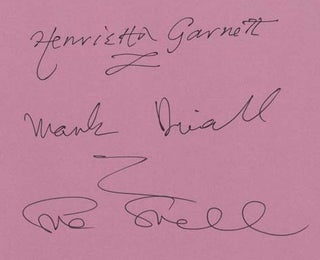 Henrietta Garnett
Mark Divall
Sue Snell